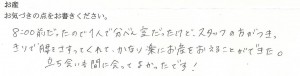 お産
お気づきの点をお書きください。
8:00前だったので1人で分べん室だったけど、スタッフの方がつき
きりで腰をさすってくれて、かなり楽にお産をおえることができた。
立ち会いも間に合ってよかったです!